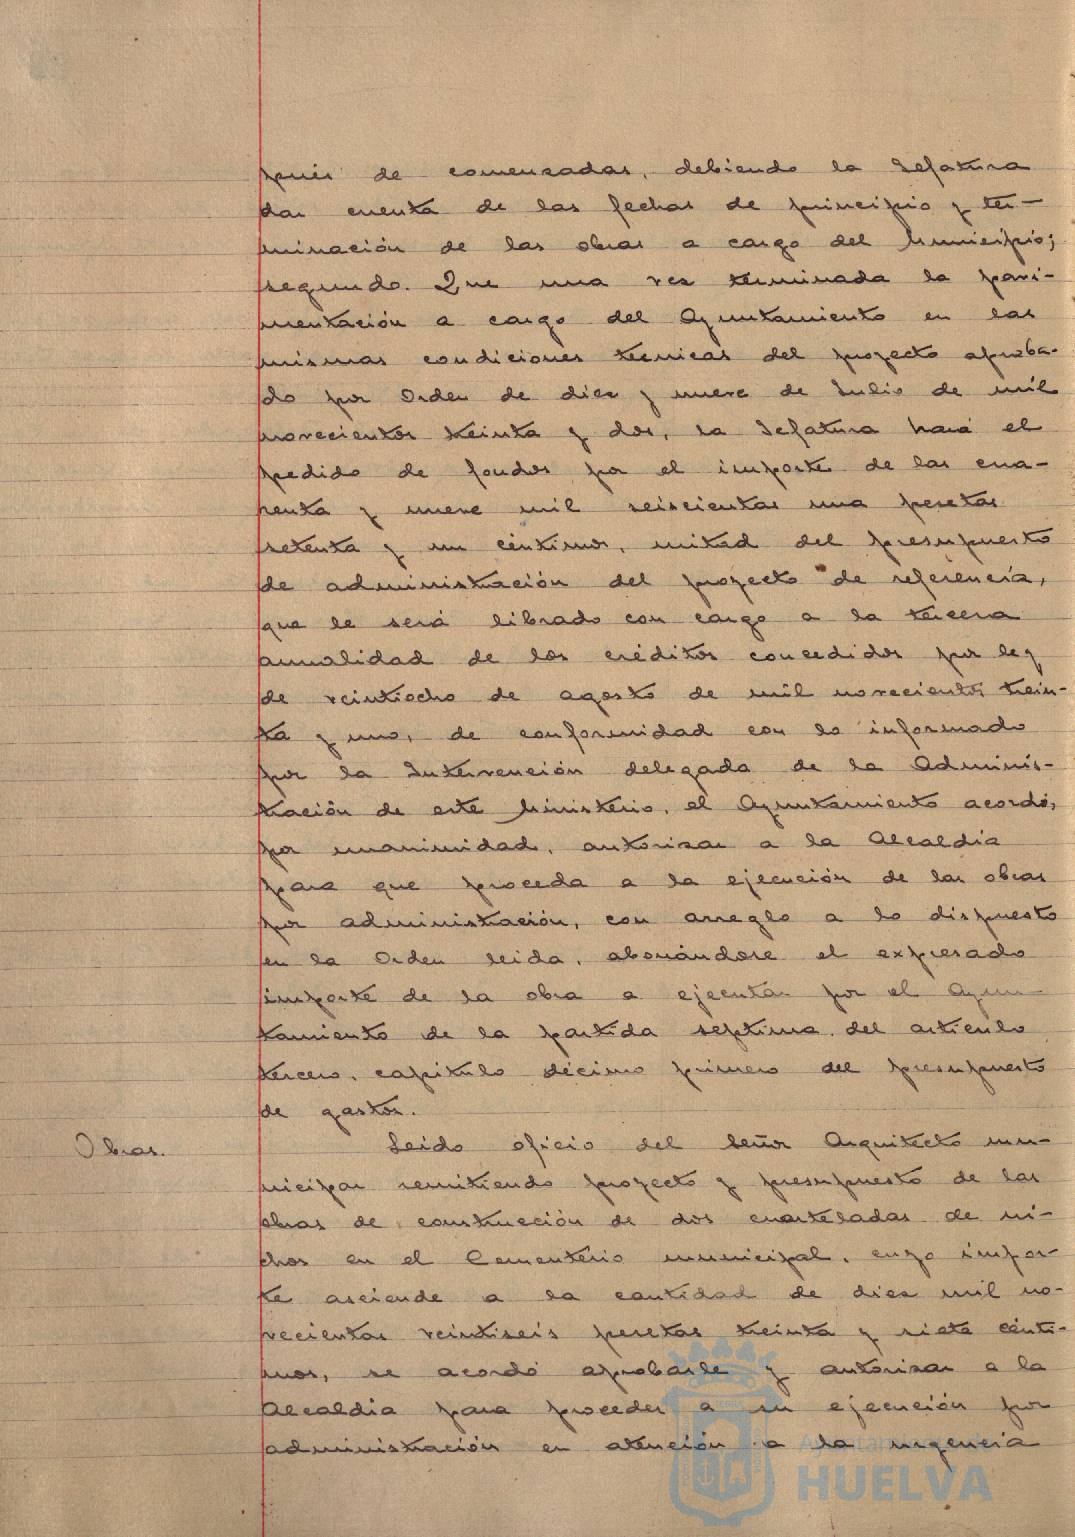 pués de comenzadas, debiendo la Jefatura
dar cuenta de las fechas de principio y ter-
minación de las obras a cargo del Municipio;
segundo. Que una vez terminada la pavi-
mentación a cargo del Ayuntamiento en las
mismas condiciones técnicas del proyecto aproba-
do por Orden de diez y nueve de Julio de mil
novecientos treinta y dos, la Jefatura hará el
pedido de fondos por el importe de las cua-
renta y nueve mil seiscientas una pesetas
setenta y un céntimos, mitad del presupuesto
de administración del proyecto de referencia,
que le será librado con cargo a la tercera
anualidad de los créditos concedidos por ley
de veintiocho de agosto de mil novecientos trein-
ta y uno, de conformidad con lo informado
por la Intervención delegada de la Adminis-
tración de este Ministerio, el Ayuntamiento acordó,
por unanimidad, autorizar a la Alcaldia
para que proceda a la ejecución de las obras
por administración, con arreglo a lo dispuesto
en la Orden leida, abonándose el expresado
importe de la obra a ejecutar por el Ayun-
tamiento de la partida septima del articulo
tercero, capítulo décimo primero del presupuesto
de gastos.
Obras. Leido oficio del Señor Arquitecto mu-
nicipar remitiendo proyecto y presupuesto de las
obras de construcción de dos cuarteladas de ni-
chos en el Cementerio municipal, cuyo impor-
te asciende a la cantidad de diez mil no-
vecientas veintiseis pesetas treinta y siete cénti-
mos, se acordó aprobarle y autorizar a la
Alcaldia para proceder a su ejecución por
administración en atención a la urgencia
Ayuntamiento de
HUELVA